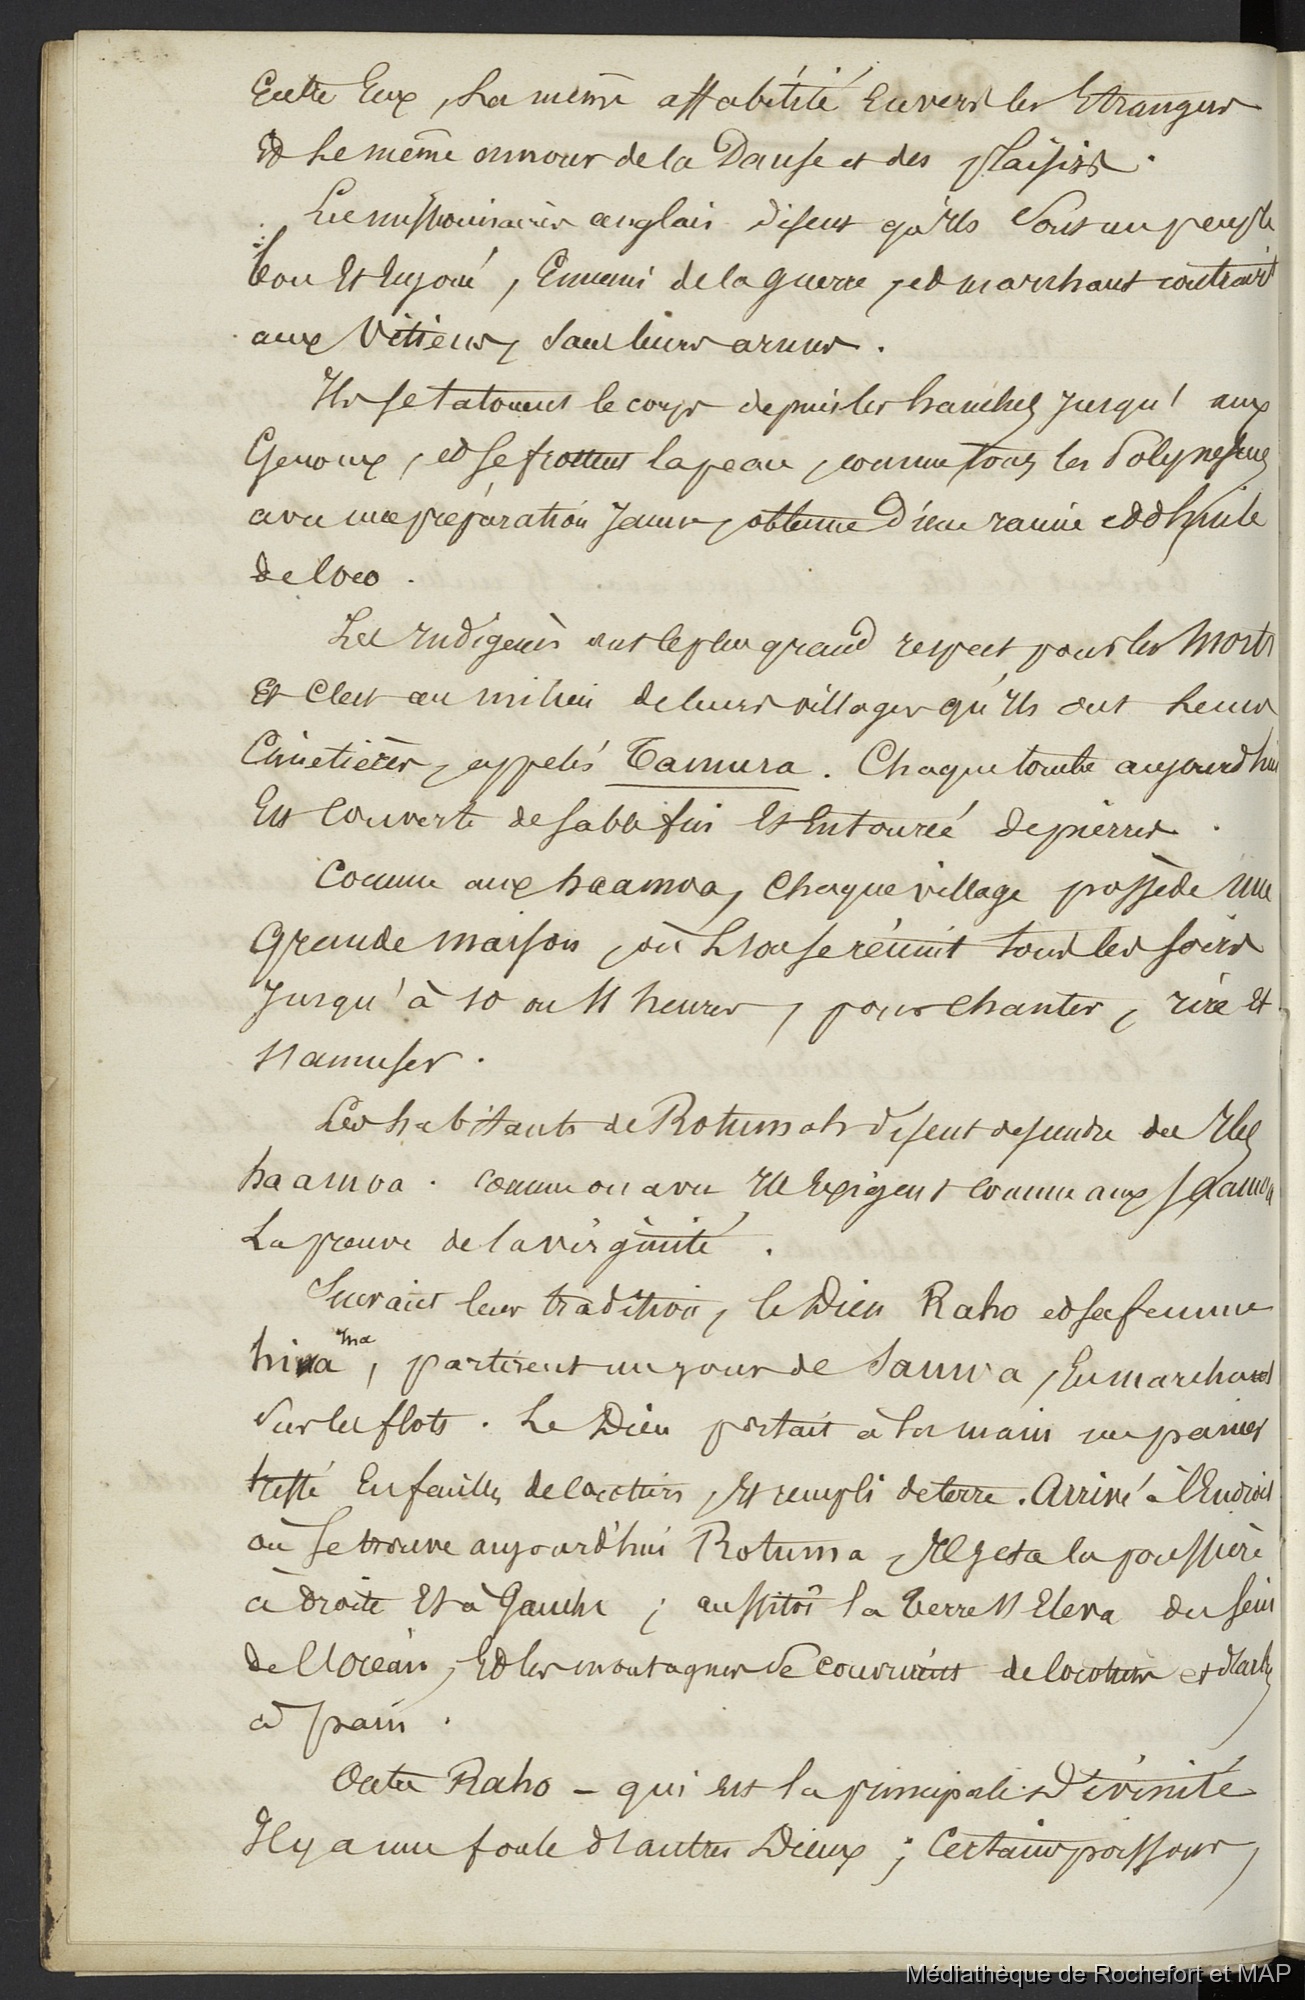 Entre Eux, La même affabilité Envers les Etrangers
Et Le même amour de la Danse et des plaisirs.
Les missionnaires anglais disent qu'Ils Sont un peuple
bon Et Enjoué, Ennemi de la guerre, et marchant contraint
aux Vitiens, Sans leurs armes.
Ils se tatouent le corps depuis les hanches Jusqu'aux
Genoux, et Se frottent la peau, comme tous les Polynesiens
avec une préparation Jaune, obtenue D'une racine et d'huile
de Coco.
Les Indigènes ont le plus grand respect pour les Morts
Et C'est au milieu de leurs villages qu'Ils ont Leurs
Cimetières, appelés Tamura. Chaque tombe aujourd'hui
Est Couverte de Sable fin Et Entourée de pierres.
Comme aux haamoa, Chaque village possède Une
Grande maison, où L'on se réunit tous les soirs
Jusqu'à 10 ou 11 heures, pour Chanter, rire Et
s'amuser.
Les habitants de Rotumah disent descendre des Iles
haamoa. Comme on a vu Ils Exigent Comme aux Samoa
La preuve de la virginité.
Suivant leur tradition, le Dieu Raho et sa femme
hina ma, partirent un jour de Samoa, En marchant
Sur les flots. Le Dieu portait à la main un panier
tressé En feuilles de Cocotiers, Et rempli de terre. Arrivé à l'Endroit
où Se trouve aujourd'hui Rotuma, Il jeta la poussière
à droite Et à Gauche ; aussitôt la Terre s'Eleva du Sein
de l'Océan, Et les montagnes Se couvrirent de Cocotiers et d'arbres
à pain.
Outre Raho - qui Est la principale Divinité
Il y a une foule d'autres Dieux ; Certains poissons,
Médiathèque de Rochefort et MAP